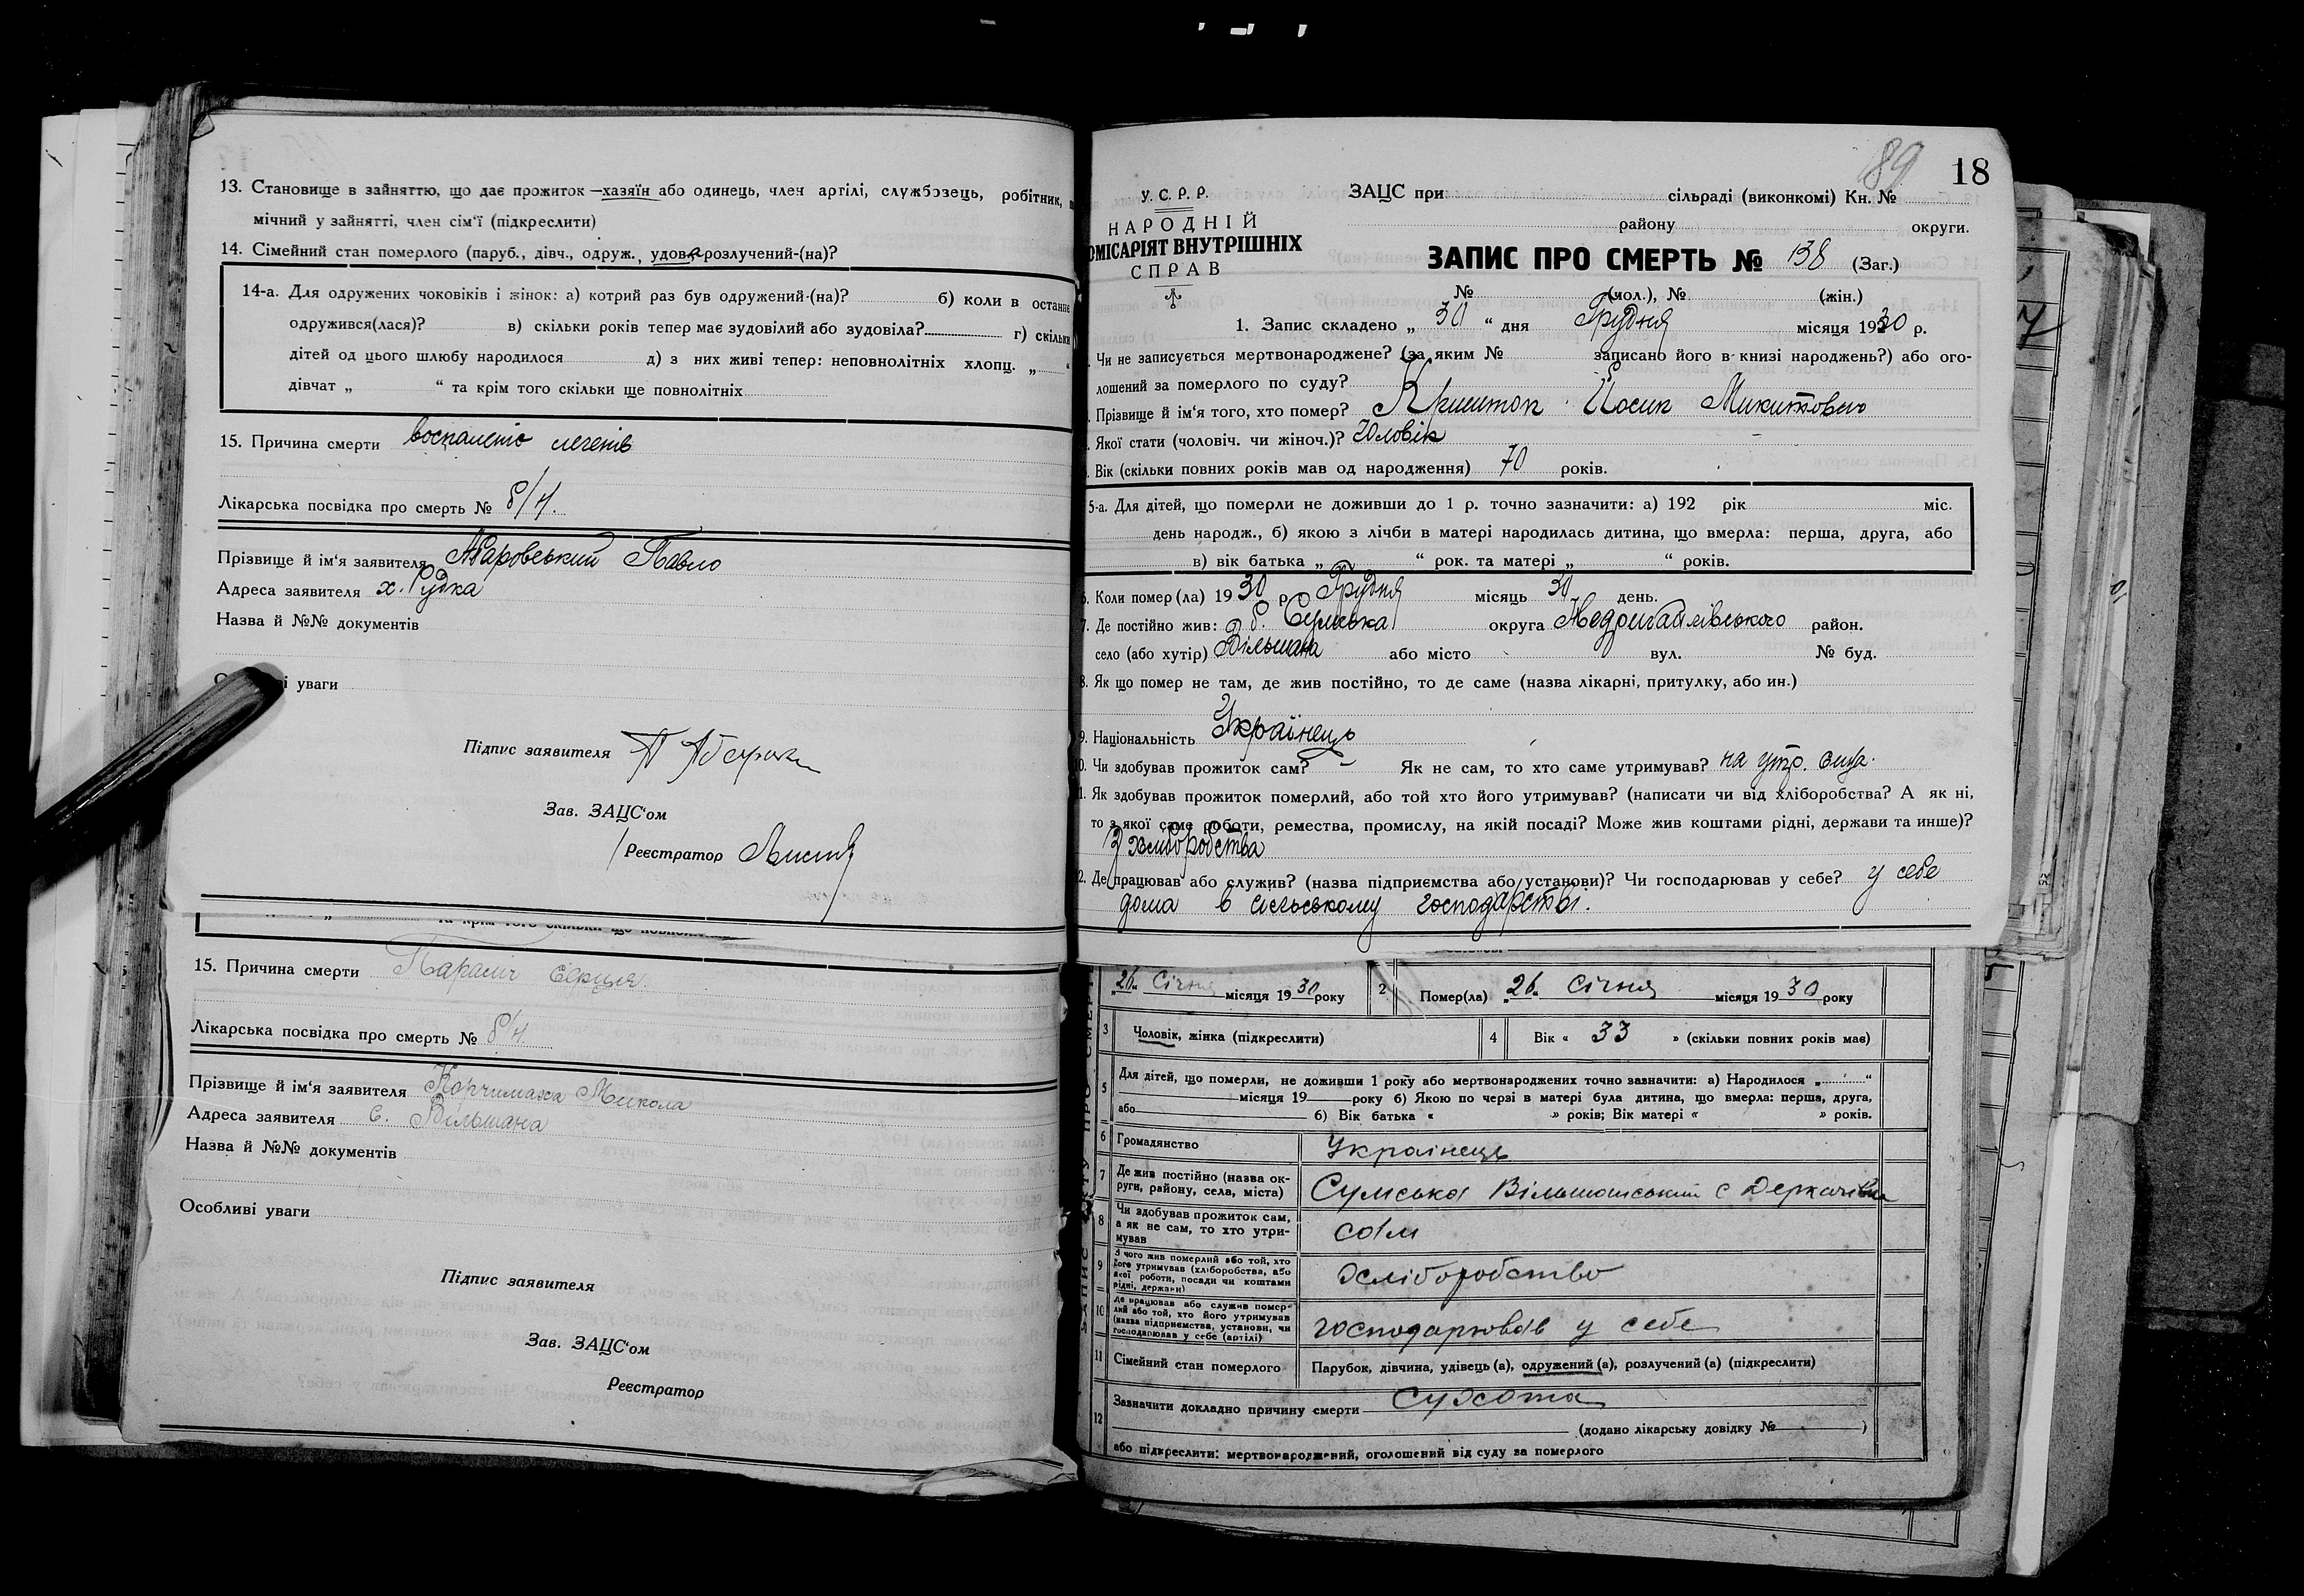 13. Становище в зайняттю, що дає прожиток—хазяїн або одинець, член артілі, службовець, робітник,
мічний у зайнятті, член сім'ї (підкреслити)
14. Сімейний стан померлого (паруб., дівч., одруж., удов. розлучений-(на)?
14-а. Для одружених чоковіків і жінок: а) котрий раз був одружений-(на)? б) коли в останнє
одружився(лася)? в) скільки років тепер має зудовілий або зудовіла? г) скільки
дітей од цього шлюбу народилося д) з них живі тепер: неповнолітніх хлопц. „ “
дівчат „ “ та крім того скільки ще повнолітніх
15. Причина смерти воспаленіє легенів
Лікарська посвідка про смерть № б/н.
Прізвище й ім'я заявителя Павло
Адреса заявителя х. Рудка
Назва й №№ документів
уваги
Підпис заявителя
Зав. ЗАЦС'ом
Реєстратор
15. Причина смерти Параліч серця.
Лікарська посвідка про смерть № б/н.
Прізвище й ім'я заявителя Корчимаха Микола
Адреса заявителя с. Вільшана
Назва й №№ документів
Особливі уваги
Підпис заявителя
Зав. ЗАЦС'ом
Реєстратор
89 18
У. С. Р. Р.
НАРОДНІЙ
ОМІСАРІЯТ ВНУТРІШНІХ
СПРАВ
ЗАЦС при сільраді (виконкомі) Кн. №
району округи.
ЗАПИС ПРО СМЕРТЬ № 138 (Заг.)
№ (чол.), № (жін.)
1. Запис складено „ 30 “ дня Грудня місяця 1930 р.
Чи не записується мертвонароджене? (за яким № записано його в книзі народжень?) або ого-
лошений за померлого по суду?
Прізвище й ім'я того, хто помер? Криштоп Йосип Микитович
Якої стати (чоловіч. чи жіноч.)? Чоловік
Вік (скільки повних років мав од народження) 70 років.
5-а. Для дітей, що померли не доживши до 1 р. точно зазначити: а) 192 рік міс.
день народж., б) якою з лічби в матері народилась дитина, що вмерла: перша, друга, або
в) вік батька „ “ рок. та матері „ “ років.
6. Коли помер(ла) 1930 р. Грудня місяць 30 день.
7. Де постійно жив: б. Сумська округа Недригайлівського район.
село (або хутір) Вільшана або місто вул. № буд.
8. Як що помер не там, де жив постійно, то де саме (назва лікарні, притулку, або ин.)
9. Національність Українець
10. Чи здобував прожиток сам? – Як не сам, то хто саме утримував? на утр. сина.
1. Як здобував прожиток померлий, або той хто його утримував? (написати чи від хліборобства? А як ні,
то з якої саме роботи, ремества, промислу, на якій посаді? Може жив коштами рідні, держави та инше)?
З хліборобства
2. Де працював або служив? (назва підприємства або установи)? Чи господарював у себе? у себе
дома в сільському господарстві.
„26“ Січня місяця 1930 року 2 Помер(ла) „26“ Січня місяця 1930 року
3 Чоловік, жінка (підкреслити) 4 Вік « 33 » (скільки повних років має)
5 Для дітей, що померли, не доживши 1 року або мертвонароджених точно зазначити: а) Народилося „ “
місяця 19 року б) Якою по черзі в матері була дитина, що вмерла: перша, друга,
або б) Вік батька « » років; Вік матері « » років.
6 Громадянство Українець
7 Де жив постійно (назва ок-
руги, району, села, міста) Сумська Вільшанський с Деркачівка
8 Чи здобував прожиток сам,
а як не сам, то хто утри-
мував сам
9 З чого жив померлий або той, хто
його утримував (хліборобства, або
якої роботи, посади чи коштами
рідні, держави) Хліборобство
10 Де працював або служив помер-
лий або той, хто його утримував
(назва підприємства, установи, чи
господарював у себе (артілі) господарював у себе
11 Сімейний стан померлого Парубок, дівчина, удівець(а), одружений(а), розлучений(а) (підкреслити)
12 Зазначити докладно причину смерти Сухота
(додано лікарську довідку № )
або підкреслити: мертвонароджений, оголошений від суду за померлого